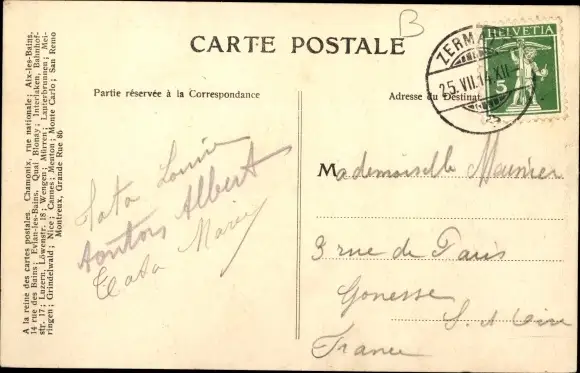 CARTE POSTALE
B
Partie réservée à la Correspondance
Adresse du Destinat
ZERMA
25.VII.14.XII
HELVETIA
5
A la reine des cartes postales. Chamonix, rue nationale; Aix-les-Bains,
14 rue des Bains; Evian-les-Bains, Quai Blonay; Interlaken, Bahnhof-
str. 17; Luzern, Löwenstr. 18; Wengen; Mürren; Lauterbrunnen; Mei-
ringen; Grindelwald; Nice; Cannes; Menton; Monte Carlo; San Remo
Montreux, Grande Rue 86
Tata Louise
Tonton Albert
Tata Marie
Mademoiselle Meunier
3 rue de Paris
Gonesse
S. et Oise
France